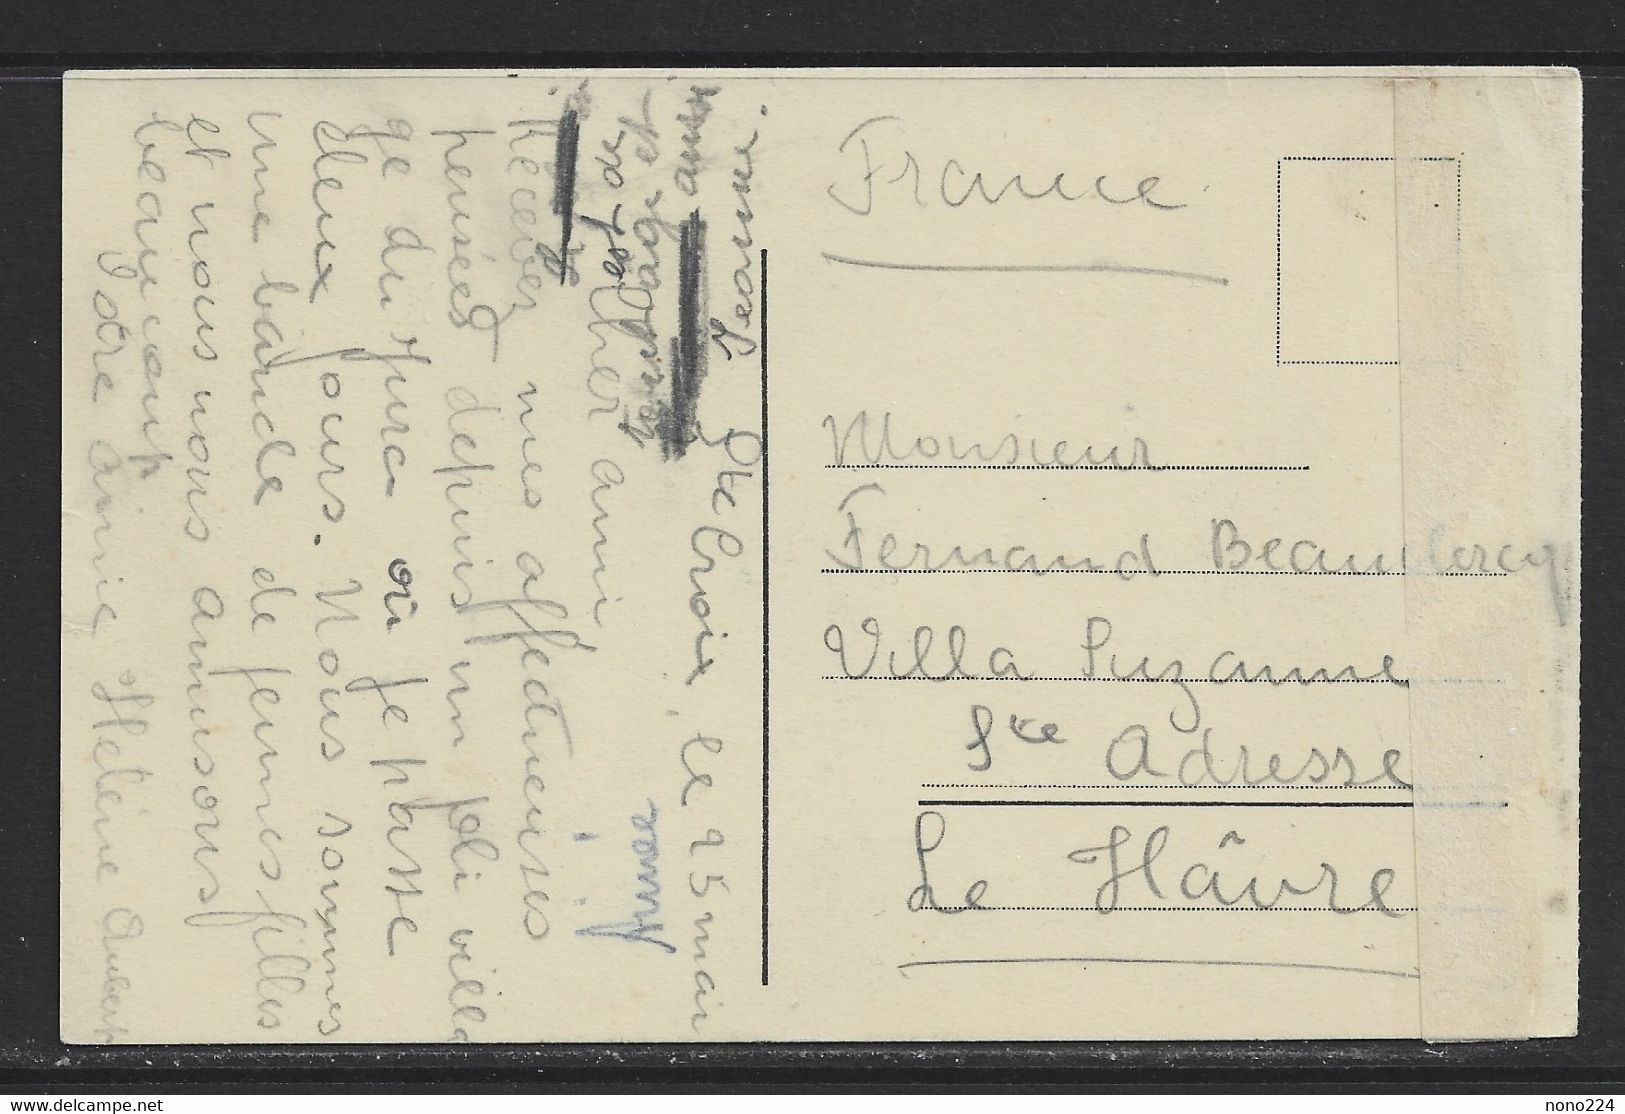 Ste Croix, le 25 mai
Cher ami
Recevez mes affectueuses
pensées depuis un joli villa
ge du Jura où je passe
deux jours. Nous sommes
une bande de jeunes filles
et nous nous amusons
beaucoup
Votre amie Hélène Aubert
France
Monsieur
Fernand Beauclercq
Villa Suzanne
Ste Adresse
Le Hâvre
www.delcampe.net
nono224